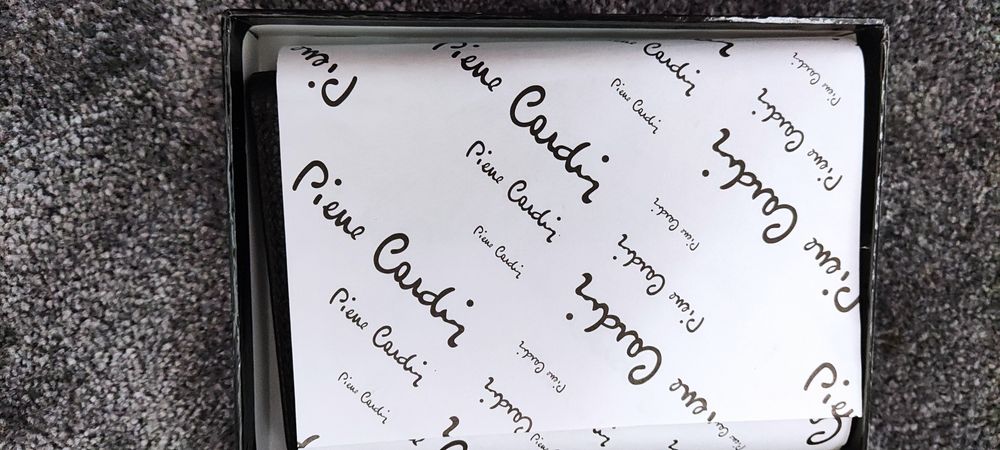 Pierre
Pierre Cardin
Cardin
Pierre Cardin
Pierre Cardin
Pierre Cardin
Pierre Cardin
Pierre Cardin
Pierre Cardin
Pierre Cardin
Pierre Cardin
Pierre Cardin
Pierre Cardin
Pierre Cardin
Pierre Cardin
Pierre Cardin
Pierre Cardin
Pierre Cardin
Pierre Cardin